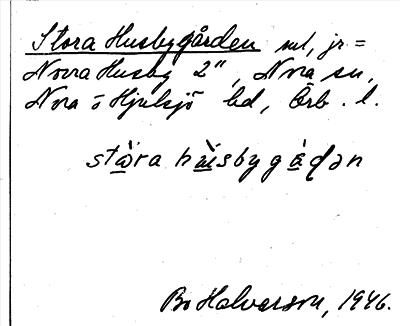 Stora Husbygården ml, jr =
Norra Husby 2", Nora sn,
Nora o Hjulsjö bd, Örb. l.
stὼra hὼsbygàɖən
Bo Halvarson, 1946.